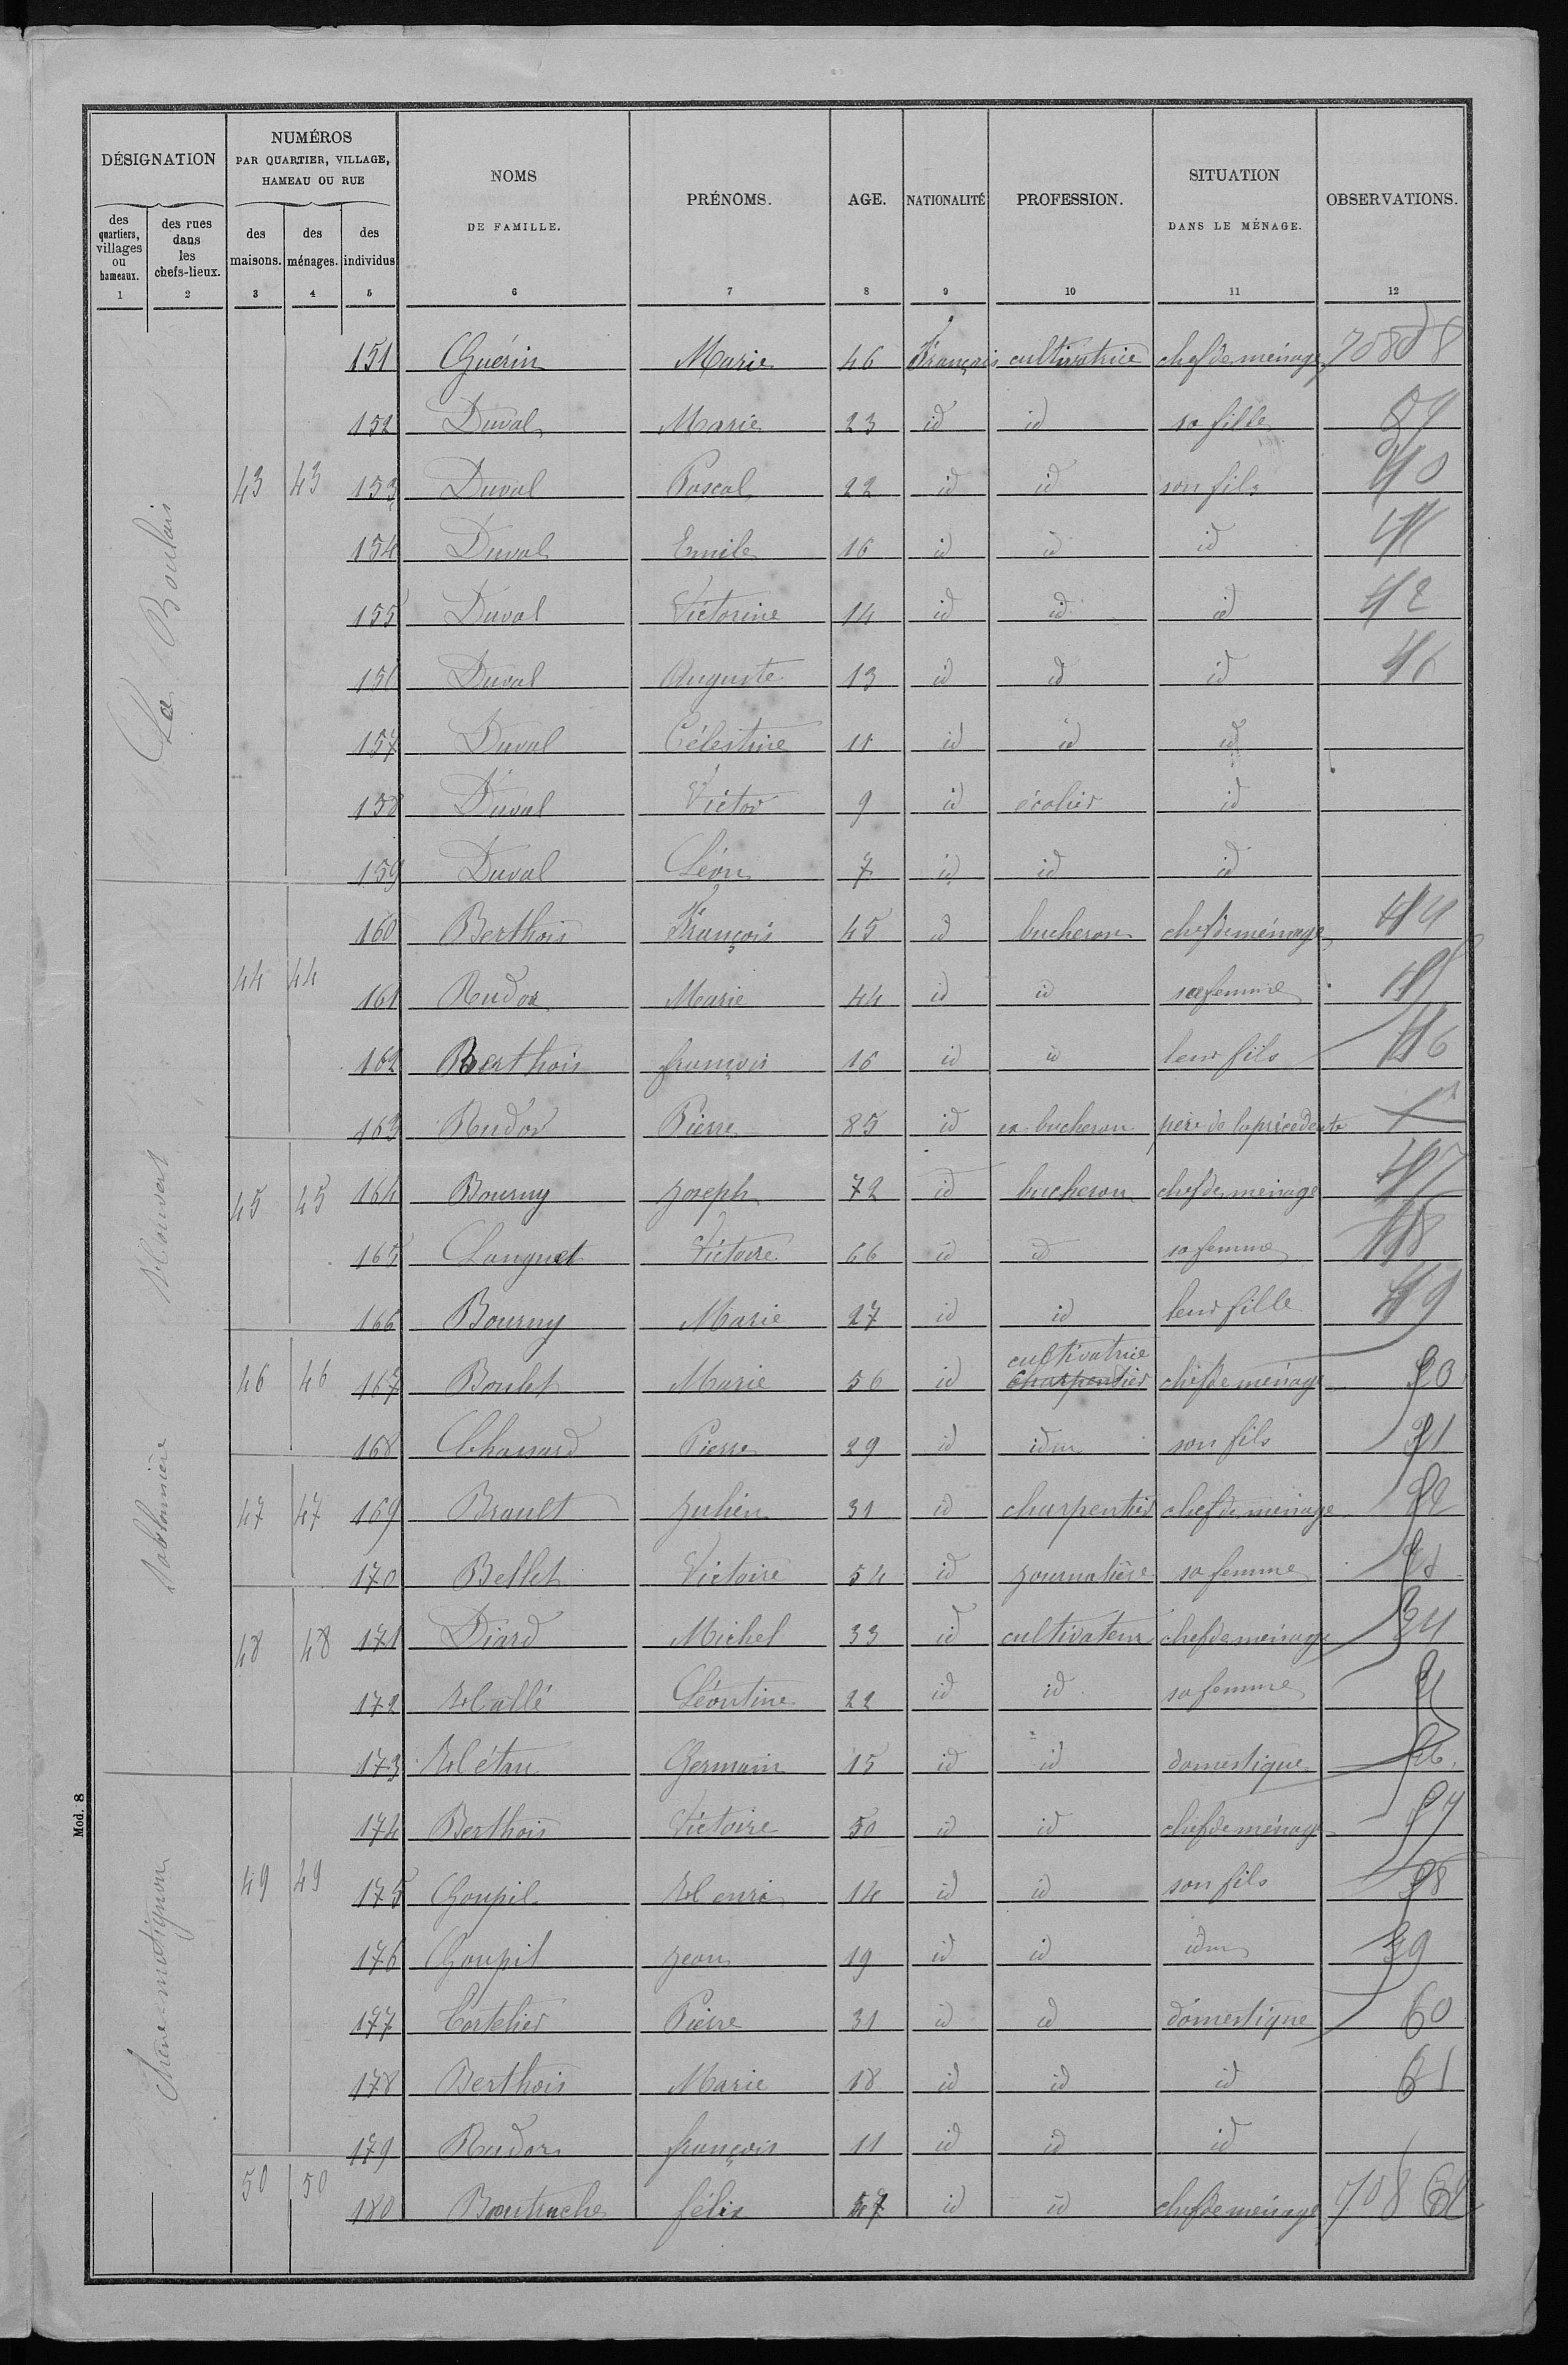 DÉSIGNATION
NUMÉROS
PAR QUARTIER, VILLAGE,
HAMEAU OU RUE
NOMS
DE FAMILLE.
PRÉNOMS.
AGE.
NATIONALITÉ
PROFESSION.
SITUATION
DANS LE MÉNAGE.
OBSERVATIONS.
des quartiers, villages ou hameaux.
des rues dans les chefs-lieux.
des maisons.
des ménages.
des individus
1 2 3 4 5 6 7 8 9 10 11 12
La Boulais
151 Guérin Marie 46 Français cultivatrice chef de ménage
152 Duval Marie 23 id id sa fille
43 43 153 Duval Pascal 22 id id son fils 40
154 Duval Emile 16 id id id 41
155 Duval Victorine 14 id id id 42
156 Duval Auguste 13 id id id
157 Duval Célestine 11 id id id
158 Duval Victor 9 id écolier id
159 Duval Léon 7 id id id
160 Berthois François 45 id bucheron chef de ménage 44
44 44 161 Rudor Marie 44 id id sa femme 45
162 Berthois françois 16 id id leur fils 46
163 Rudor Pierre 85 id ex-bucheron père de la précédente
45 45 164 Bourny Joseph 72 id bucheron chef de ménage 47
165 Languet Victoire 66 id id sa femme 48
166 Bourny Marie 27 id id leur fille 49
Sablonnière
46 46 167 Boulet Marie 56 id cultivatrice Charpentier chef de ménage 50
168 Chassard Pierre 29 id idm son fils 51
47 47 169 Brault Julien 31 id charpentier chef de ménage 52
170 Bellet Victoire 54 id journalière sa femme
48 48 171 Diard Michel 33 id cultivateur chef de ménage 54
172 Hallé Léontine 22 id id sa femme
173 Hétru Germain 15 id id domestique 56
Chêne-matignon
174 Berthois Victoire 50 id id chef de ménage 57
49 49 175 Goupil Henri 14 id id son fils 58
176 Goupil Jean 19 id id idm 59
177 Cortelier Pierre 31 id id domestique 60
178 Berthois Marie 18 id id id 61
179 Rudor françois 11 id id id
50 50 180 Boutruche félix 47 id id chef de ménage 708 62
Mod. 8